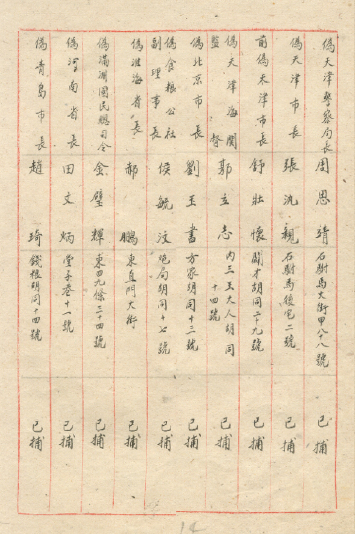 偽天津警察局長 周思靖 石駙馬大街甲八十八號 已捕
偽天津市長 張汎親 石駙馬後宅二號 已捕
前偽天津市長 舒壯懷 關才胡同二十九號 已捕
偽天津海關監督 郭立志 內三王大人胡同十四號 已捕
偽北京市長 劉玉書 方家胡同十三號 已捕
偽食糧公社副理事長 侯毓汶 炮局胡同十七號 已捕
偽淮海省長 郝鵬 東直門大街 已捕
偽滿洲國民總司令 金璧輝 東四九條三十四號 已捕
偽河南省長 田文炳 堂子巷十一號 已捕
偽青島市長 趙琦 錢糧胡同十四號 已捕
14